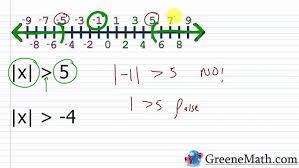 -9 -7 -5 -3 -1 1 3 5 7 9
-8 -6 -4 -2 0 2 4 6 8
|x| > 5
|-1| > 5 NO!
1 > 5 false
|x| > -4
GreeneMath.com